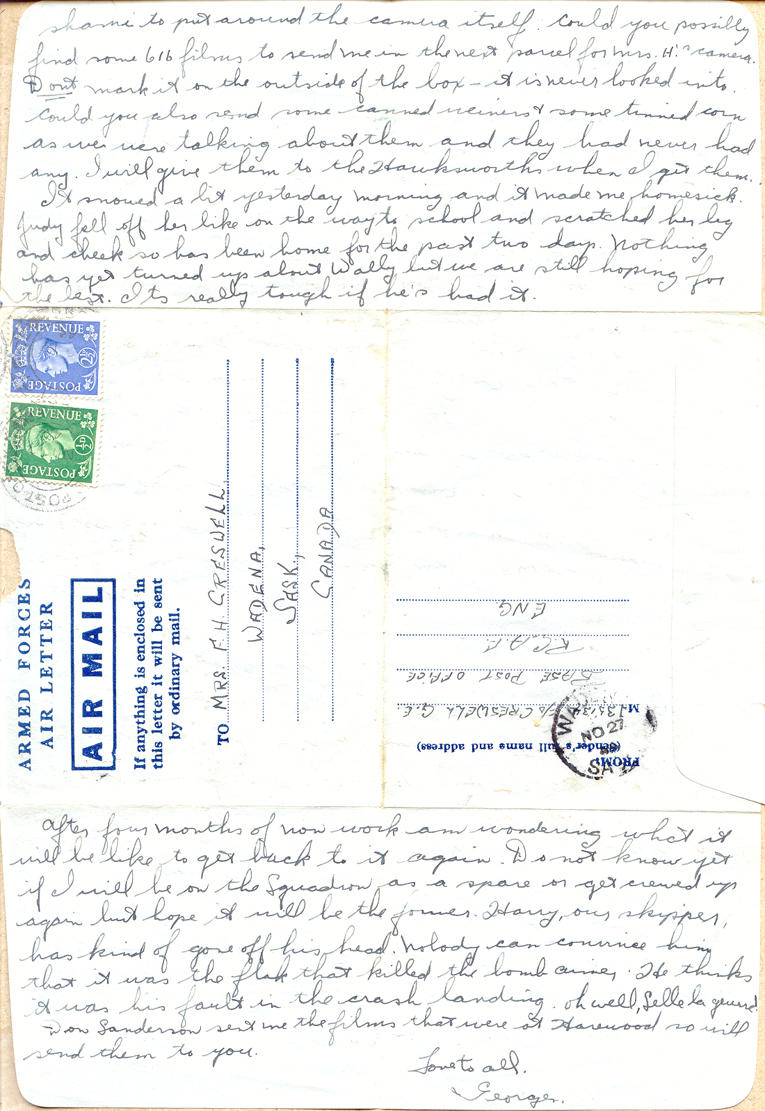 shame to put around the camera itself. Could you possibly
find some 616 films to send me in the next parcel for Mrs. H.'s camera.
Dont mark it on the outside of the box - it is never looked into.
Could you also send some canned weiners & some tinned corn
as we were talking about them and they had never had
any. I will give them to the Hawksworths when I get them.
It snowed a bit yesterday morning and it made me homesick.
Judy fell off her bike on the way to school and scratched her leg
and cheek so has been home for the past two days. Nothing
has yet turned up about Wally but we are still hoping for
the best. Its really tough if he's had it.
REVENUE
2½D
POSTAGE
REVENUE
½D
POSTAGE
ARMED FORCES
AIR LETTER
AIR MAIL
If anything is enclosed in
this letter it will be sent
by ordinary mail.
TO MRS. F. H. CRESWELL,
WADENA,
SASK,
CANADA
FROM:
(Sender's full name and address)
CRESWELL G.E.
BASE POST OFFICE
R.C.A.F.
ENG
NO 27
after four months of non work am wondering what it
will be like to get back to it again. Do not know yet
if I will be on the Squadron as a spare or get crewed up
again but hope it will be the former. Harry, our skipper,
has kind of gone off his head. Nobody can convince him
that it was the flak that killed the bomb aimer. He thinks
it was his fault in the crash landing. oh well, Selle la guerre!
Don Sanderson sent me the films that were at Harewood so will
send them to you.
Love to all.
George.